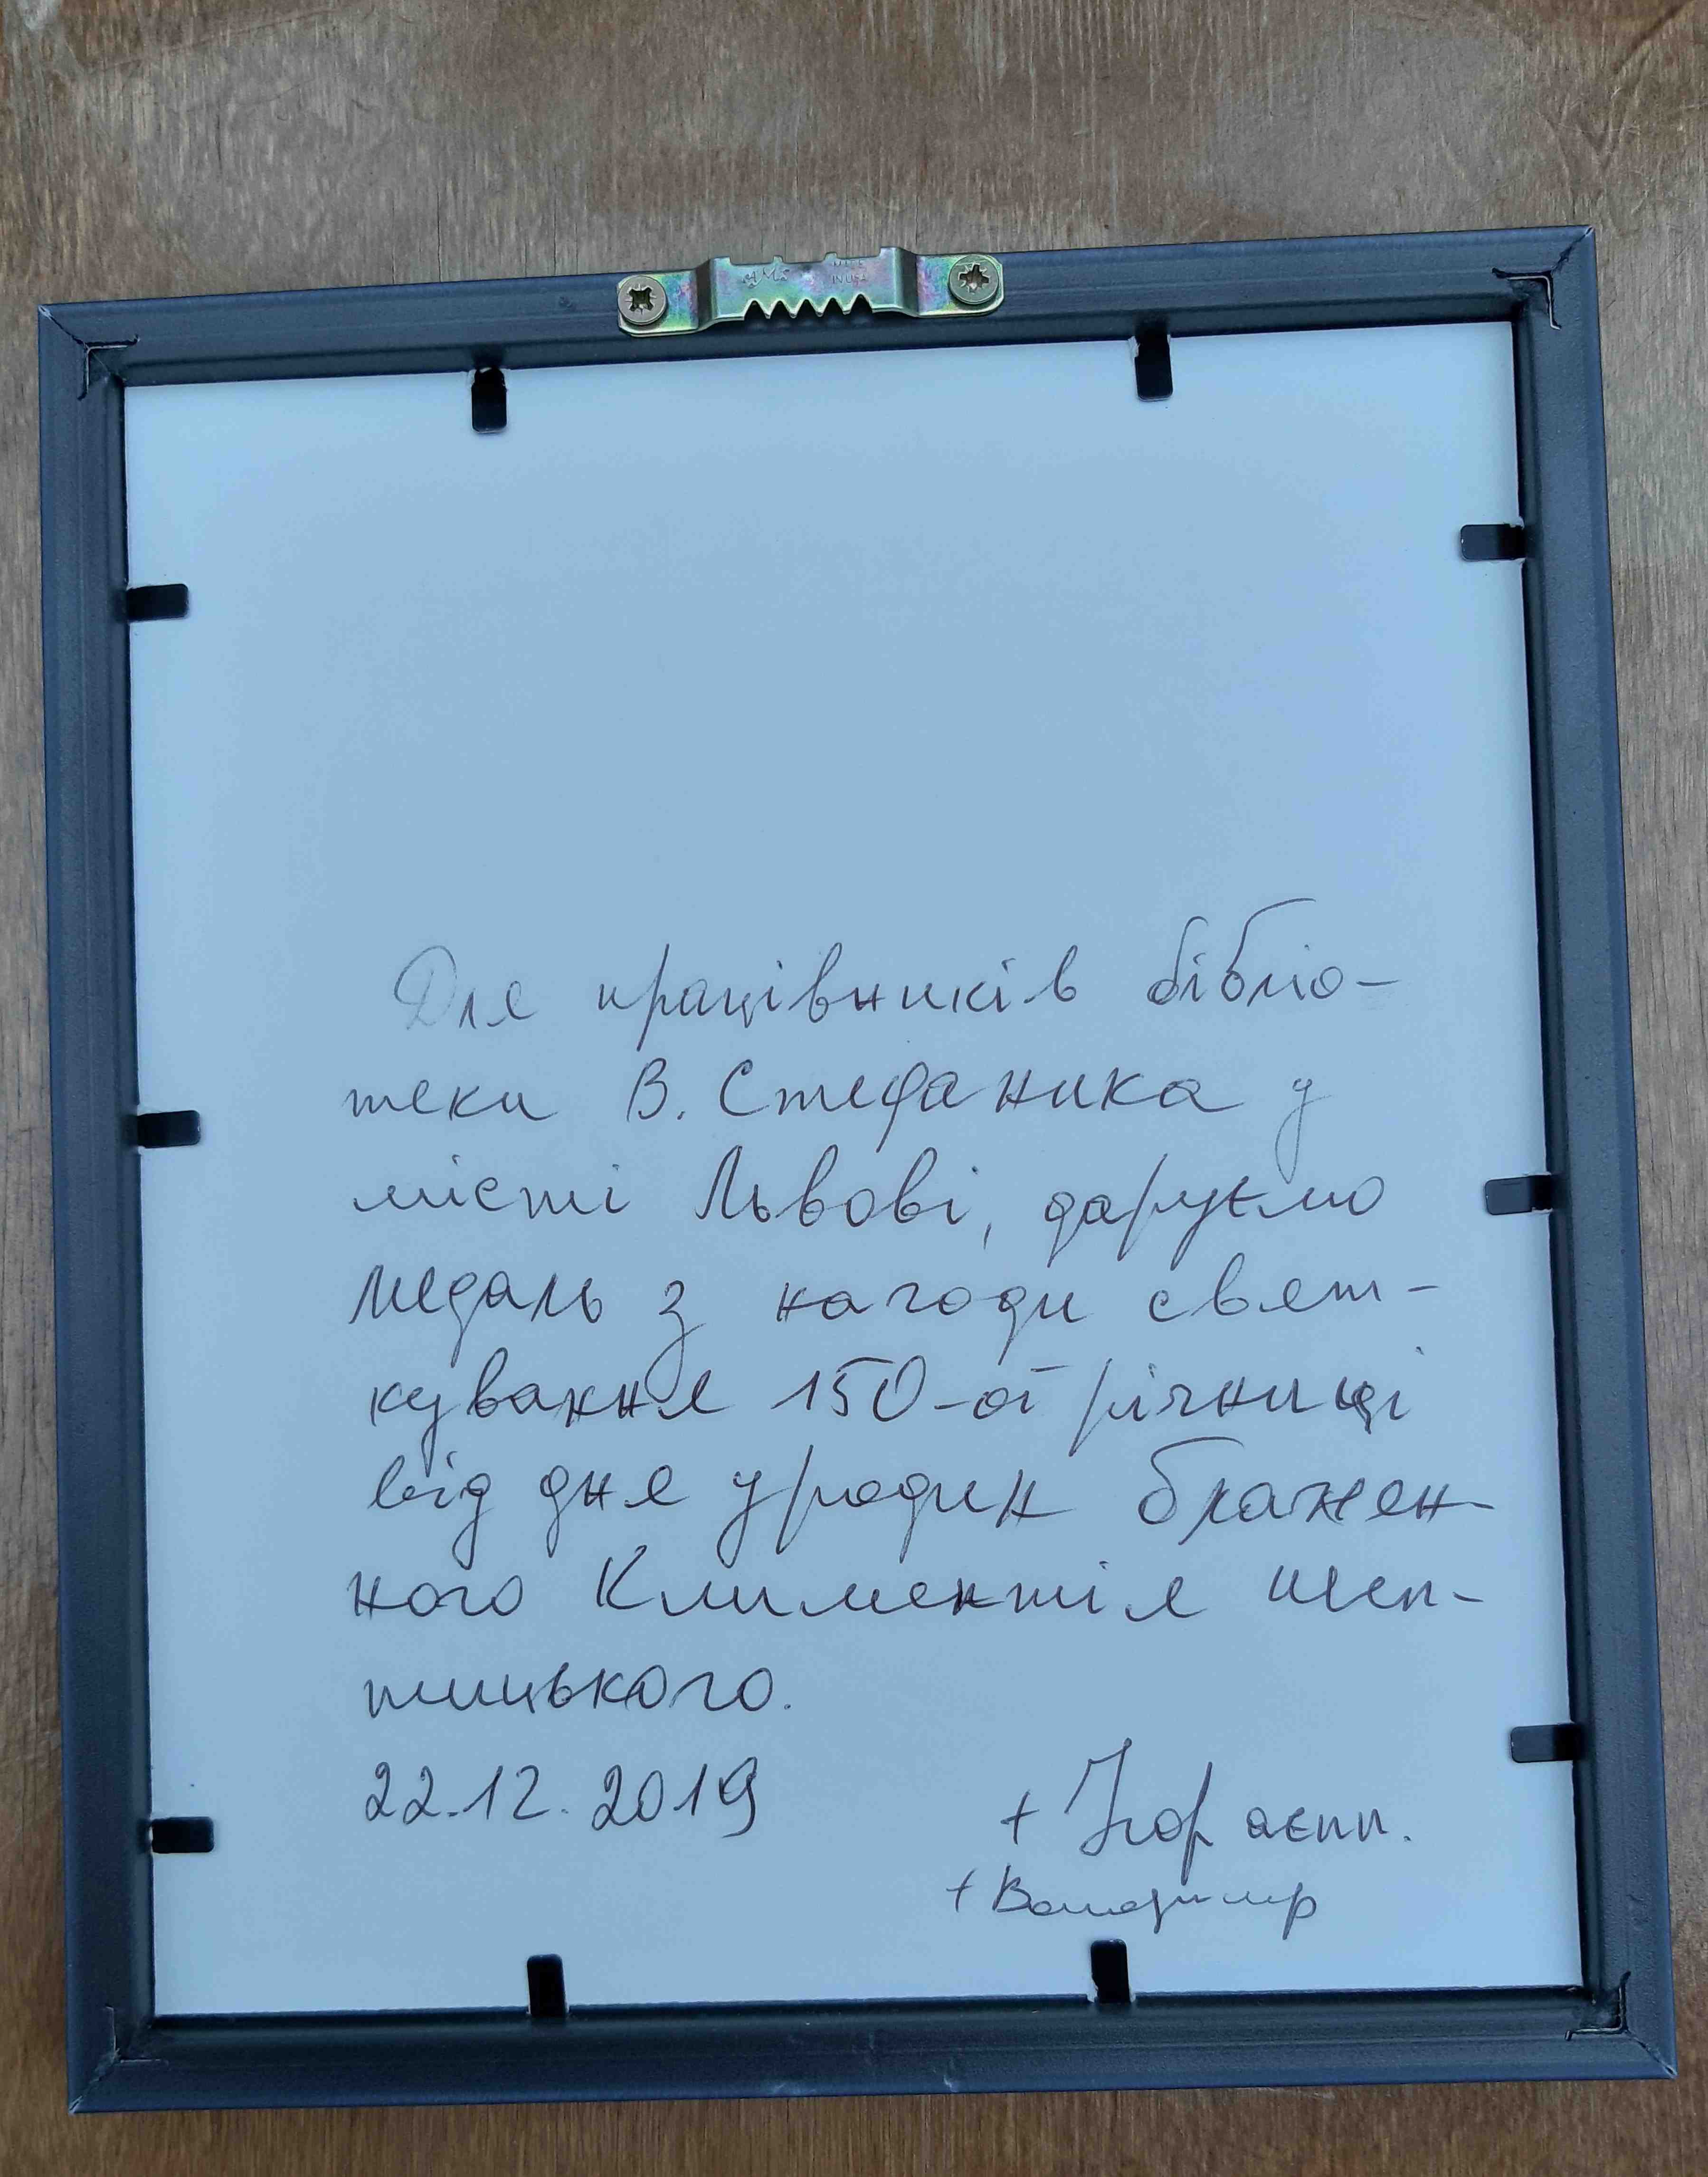 MADE
IN USA
Для працівників бібліо-
теки В. Стефаника у
місті Львові, даруємо
медаль з нагоди свят-
кування 150-ої річниці
від дня уродин блажен-
ного Климентія Шеп-
тицького.
22.12.2019
+ Ігор аєпп.
+ Володимир